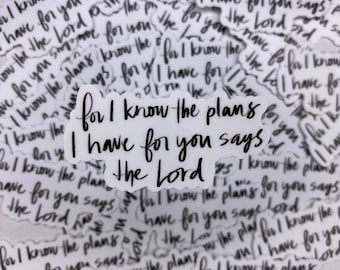 for I know the plans
I have for you says
the Lord